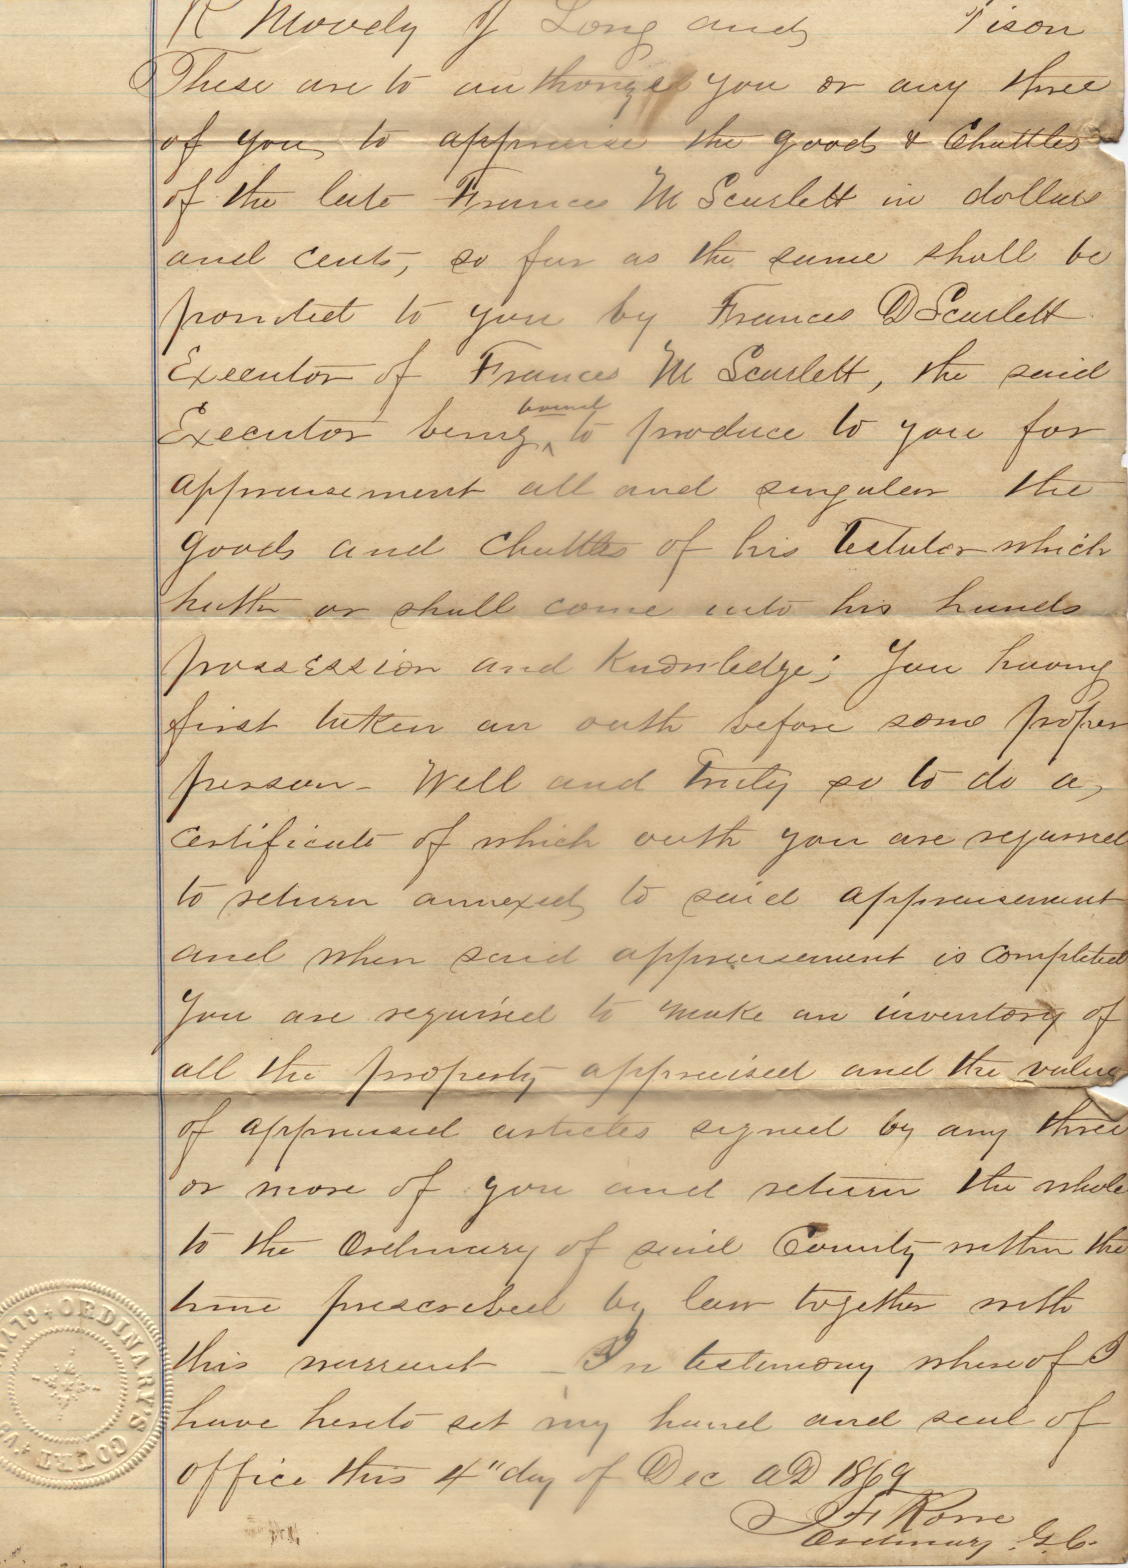 R Moody J Long and Tison
These are to authorize you or any three
of you to appraise the goods & Chattles
of the late Frances M Scarlett in dollars
and cents, so far as the same shall be
provided to you by Frances D Scarlett
Executor of Frances M Scarlett, the said
bound
Executor being ^ to produce to you for
appraisement all and singular the
goods and Chattles of his Testator which
hath or shall come into his hands
possession and Knowledge; You having
first taken an oath before some proper
person - Well and Truly so to do a,
Certificate of which oath you are required
to return annexed to said appraisement
and when said appraisement is completed
You are required to make an inventory of
all the property appraised and the value
of appraised articles signed by any three
or more of you and return the whole
to the Ordinary of said County within the
time prescribed by law together with
this warrant - In testimony whereof I
have hereto set my hand and seal of
office this 4" day of Dec AD 1869
Ordinary G.C.
ORDINARY'S COURT